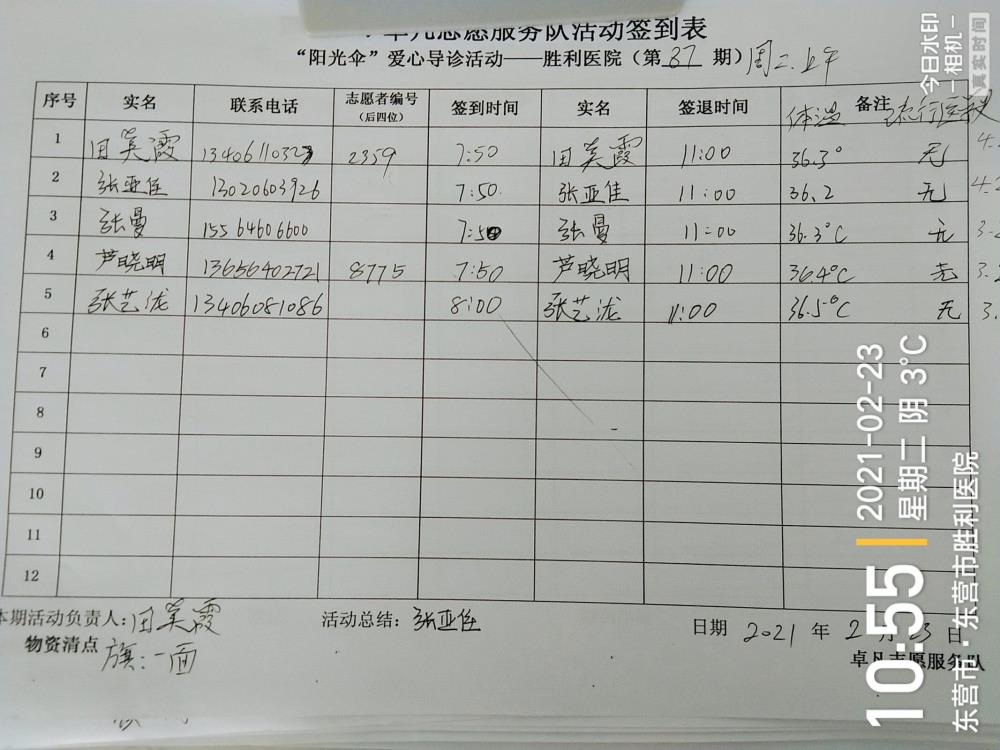 卓凡志愿服务队活动签到表
“阳光伞”爱心导诊活动——胜利医院（第 37 期）周二.上午
序号 实名 联系电话 志愿者编号（后四位） 签到时间 实名 签退时间 备注 体温
1 田美霞 13406110323 2359 7:50 田美霞 11:00 36.3° 无
2 张亚佳 13020603926 7:50 张亚佳 11:00 36.2 无
3 张曼 15564606600 7:50 张曼 11:00 36.3°C 无
4 芦晓明 13656402721 8775 7:50 芦晓明 11:00 36.4°C 无
5 张艺泷 13406081086 8:00 张艺泷 11:00 36.5°C 无
6
7
8
9
10
11
12
本期活动负责人：田美霞 活动总结：张亚佳 日期 2021 年 2 月 23 日
物资清点 旗：一面 卓凡志愿服务队
今日水印
相机
真实时间
10:55
2021-02-23
星期二 阴 3°C
东营市·东营市胜利医院